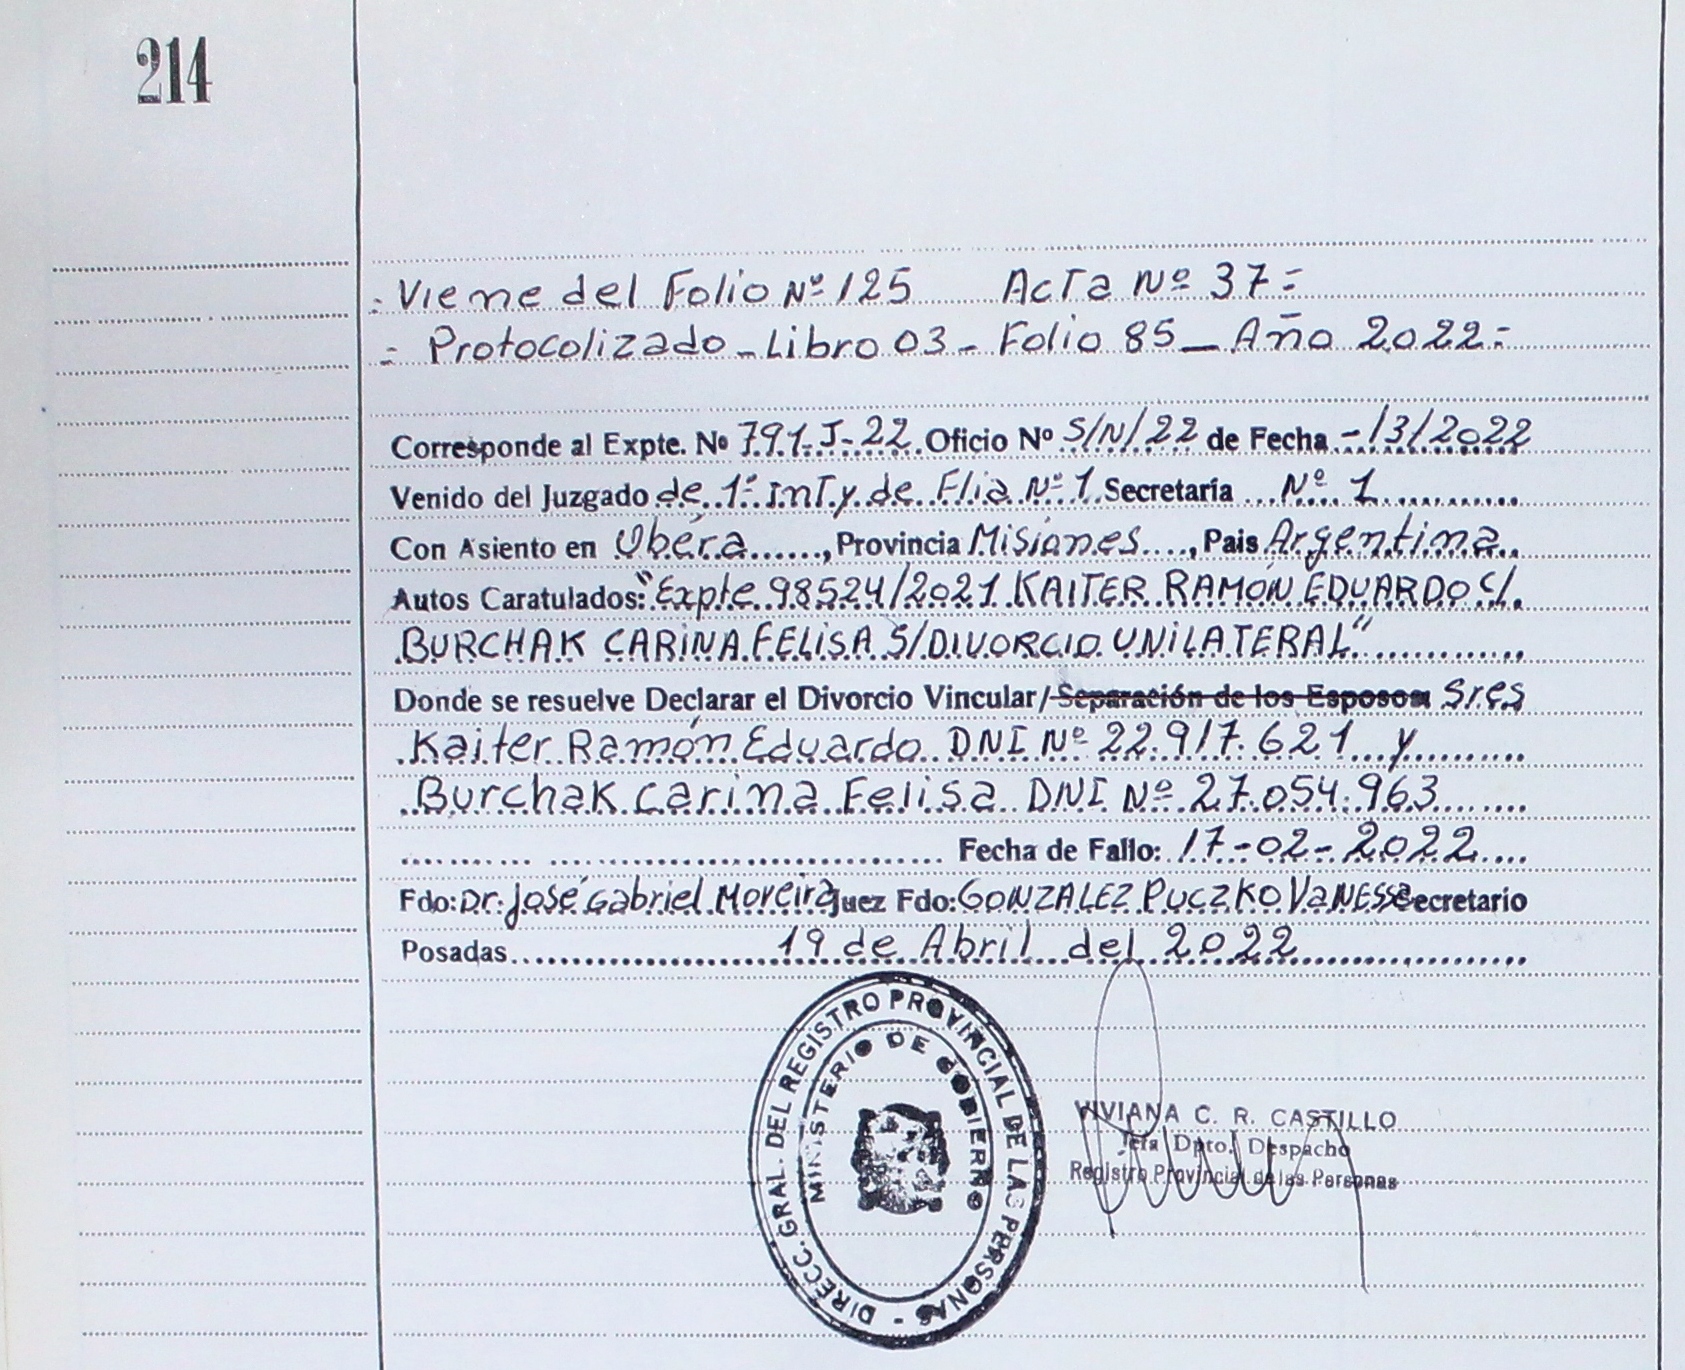 214
= Viene del Folio Nº 125 Acta Nº 37 =
= Protocolizado - Libro 03 - Folio 85 - Año 2022 =
Corresponde al Expte. Nº 791-J-22 Oficio Nº S/N/22 de Fecha -/3/2022
Venido del Juzgado de 1ª InT y de Flia Nº 1 Secretaría Nº 1
Con Asiento en Oberá, Provincia Misiones, Pais Argentina
Autos Caratulados: "Expte 98524/2021 KAITER RAMÓN EDUARDO C/
BURCHAK CARINA FELISA S/DIVORCIO UNILATERAL"
Donde se resuelve Declarar el Divorcio Vincular/Separación de los Esposos Sres
Kaiter Ramón Eduardo DNI Nº 22.917.621 y
Burchak Carina Felisa DNI Nº 27.054.963
Fecha de Fallo: 17-02-2022
Fdo: Dr. José Gabriel Moreira Juez Fdo: GONZALEZ PUCZKO VANESSA Secretario
Posadas 19 de Abril del 2022
DIRECC. GRAL. DEL REGISTRO PROVINCIAL DE LAS PERSONAS -
MINISTERIO DE GOBIERNO
VIVIANA C. R. CASTILLO
Jefa Dpto. Despacho
Registro Provincial de las Personas